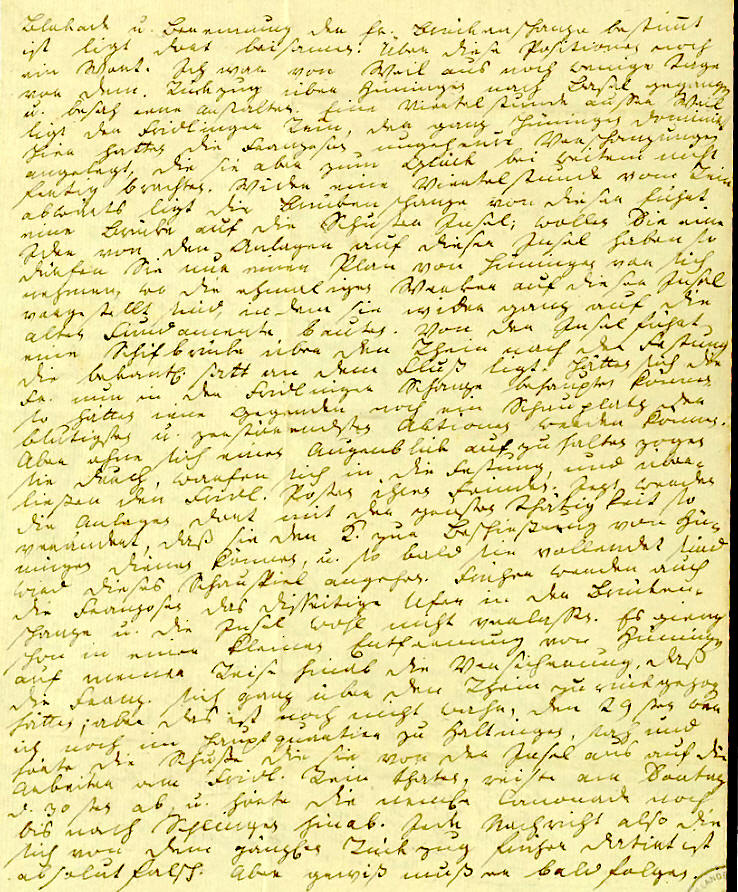 Blokade u. Berennung der fr. Brückenschanze bestimmt
ist ligt dort beisamen. Über diese Positionen noch
ein Wort. Ich war von Weil aus noch wenige Tage
vor dem Rückzug über Hüningen nach Basel gegangen
u. besah jene Anstalten. Eine Viertelstunde ausser Weil
ligt der Fridlinger Rein, der ganz Hüningen dominirt
hier hatten die Franzosen ungeheure Verschanzungen
angelegt, die sie aber zum Glück bei weitem nicht
fertig brachten. Wider eine Viertelstunde vom Rein
abwerts ligt die Brükenschanze von dieser führt
eine Brüke auf die Schuster Insel; wollen Sie eine
Idee von den Anlagen auf dieser Insel haben so
dürfen Sie nur einen Plan von Hüningen vor sich
nehmen, wo die ehmaligen Werker auf dieser Insel
vorgestellt sind, indem sie wider ganz auf die
alten Fundamente bauten. Von der Insel führt
eine Schifbrüke über den Rhein nach der Festung
die bekantl. hart an dem Fluß ligt. Hätten sich die
Fr. nun in der Fridlinger Schanze behaupten können
so hätten jene Gegenden noch ein Schauplatz der
blutigsten u. zerstörendsten Aktionen werden können.
Aber ohne sich einen Augenblick aufzuhalten zogen
sie durch, warfen sich in die Festung, und über-
ließen den Fridl. Posten ihren Feinden. Jezt werden
die Anlagen dort mit der grosten Thätigkeit so
verändert, daß sie den K. zur Beschießung von Hü-
ningen dienen können, u. so bald sie vollendet sind
wird dieses Schauspiel angehen. Früher werden auch
die Franzosen das disseitige Ufer in der Brüken-
schanze u. die Insel wohl nicht verlassen. Es gieng
schon in einer kleinen Entfernung von Hüningen
auf meiner Reise hinab die Versicherung, daß
die Franz. sich ganz über den Rhein zurückgezog
hätten; aber das ist noch nicht wahr, den 29 sten war
ich noch im Hauptquartier zu Haltingen, sah und
hörte die Schüße die sie von der Insel aus auf die
Arbeiten am Fridl. Rein thaten, reiste am Sontag
d. 30 sten ab, u. hörte die nemliche Canonade noch
bis nach Schliengen hinab. Jede Nachricht also die
sich von dem gänzlichen Rückzug früher datirt ist
absolut falsch. Aber gewiß muß er bald folgen.